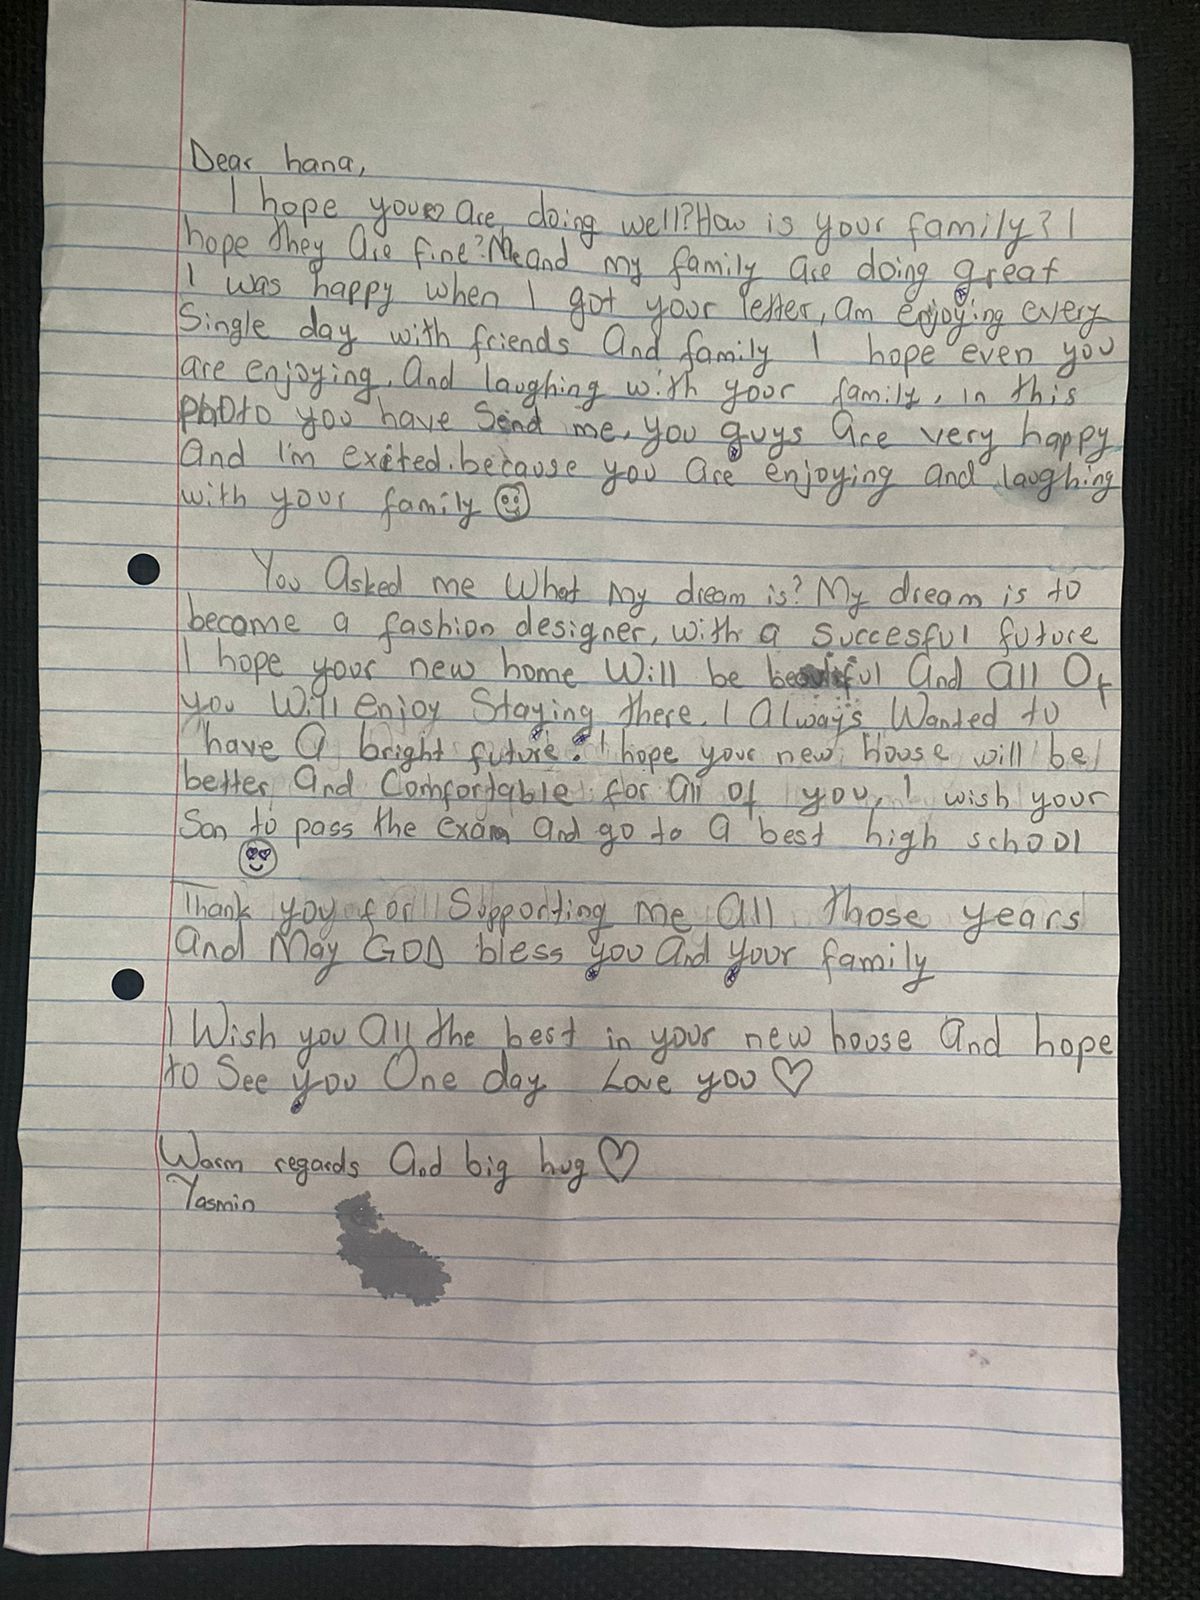 Dear hana,
I hope you are doing well? How is your family? I
hope they are fine? Me and my family are doing great
I was happy when I got your letter, am enjoying every
Single day with friends And family I hope even you
are enjoying. And laughing with your family, in this
photo you have Send me, you guys are very happy
And I'm exited. because you are enjoying and laughing
with your family
You Asked me What my dream is? My dream is to
become a fashion designer, with a succesful future
I hope your new home Will be beautiful And All Of
you Will enjoy Staying there. I Always Wanted to
have a bright future. I hope your new house will be
better And Comfortable for all of you, I wish your
Son to pass the exam and go to a best high school
Thank you for Supporting me all those years
And May GOD bless you And your family
I Wish you All the best in your new house And hope
to See you One day Love you ♡
Warm regards And big hug ♡
Yasmin